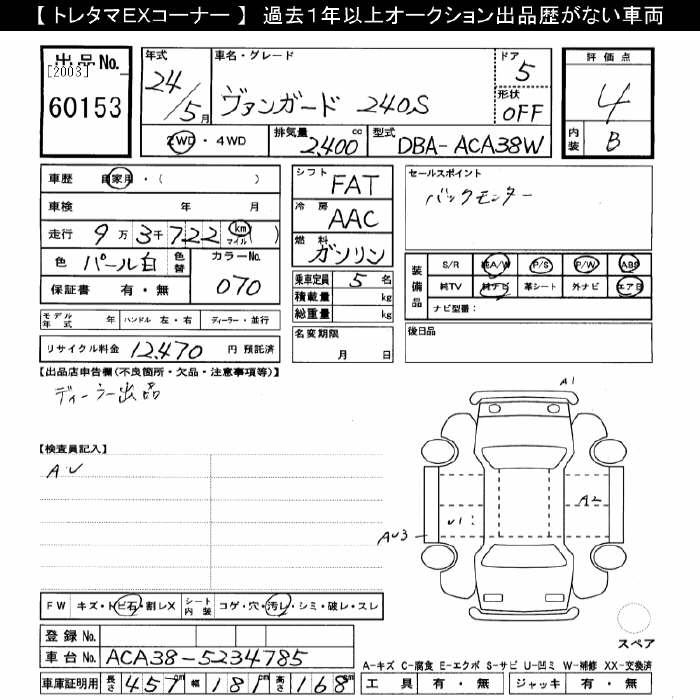 【 トレタマEXコーナー 】 過去１年以上オークション出品歴がない車両
出品No.
[2003]
60153
年式
24/5月
車名・グレード
ヴァンガード 240S
ドア
5
形状
OFF
評価点
4
内装
B
2WD・4WD
排気量
2,400 cc
型式
DBA-ACA38W
車歴 自家用・( )
車検 年 月
走行 9万3千722 km マイル )
色 パール白
色替
カラーNo.
070
保証書 有・無
シフト
FAT
冷房
AAC
燃料
ガソリン
乗車定員 5 名
積載量 kg
総重量 kg
セールスポイント
バックモニター
装備品
S/R 純A/W P/S P/W ABS
純TV 純ナビ 革シート 外ナビ エアB
ナビ型番：
モデル年式 年 ハンドル 左・右 ディーラー・並行
名変期限
月 日
後日品
リサイクル料金 12,470 円 預託済
【出品店申告欄(不良箇所・欠品・注意事項等)】
ディーラー出品
【検査員記入】
A・U
A1
A2
U1
AU3
FW キズ・トビ石・割レX
シート内装 コゲ・穴・汚レ・シミ・破レ・スレ
スペア
登録No.
車台No. ACA38-5234785
A-キズ C-腐食 E-エクボ S-サビ U-凹ミ W-補修 XX-交換済
車庫証明用 長さ 457cm 幅 181cm 高さ 168cm
工具 有・無 ジャッキ 有・無